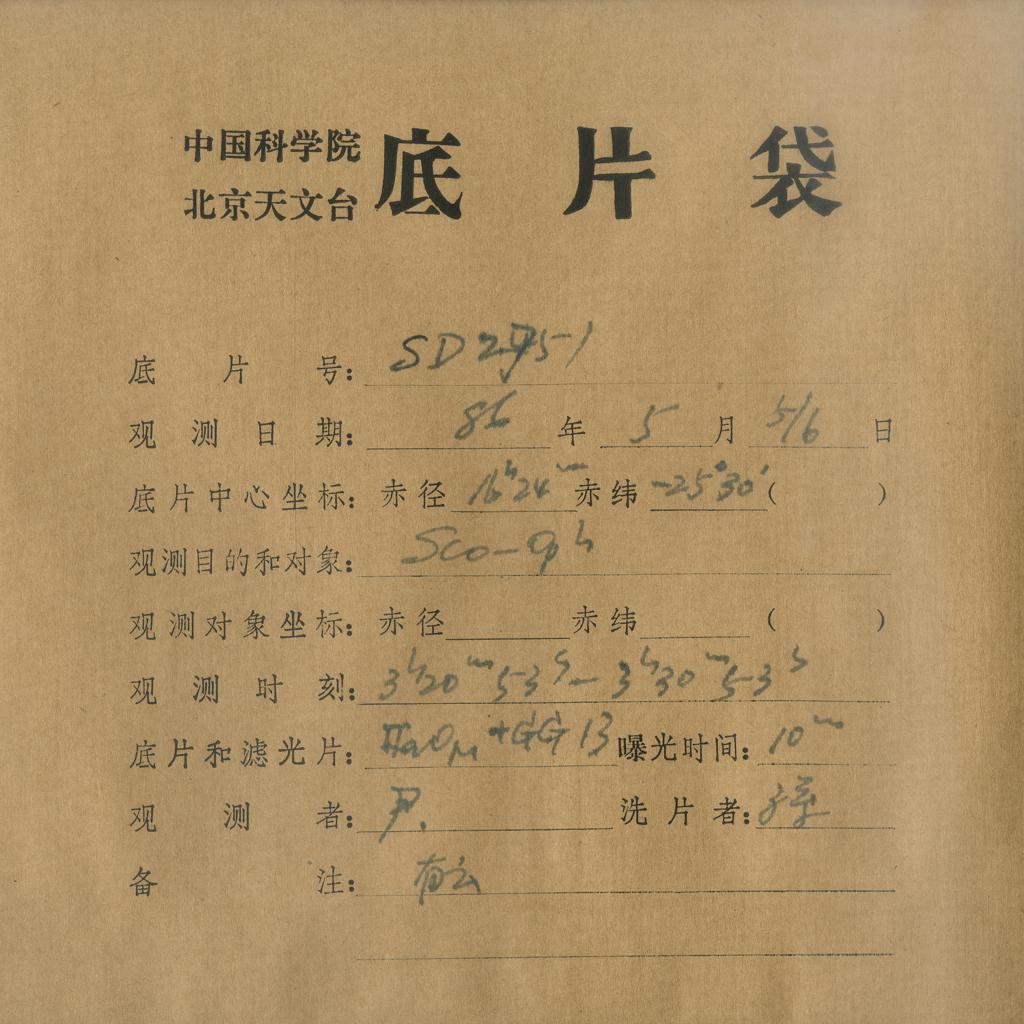 中国科学院
北京天文台 底片袋
底片号: SD
观测日期: 86 年 5 月 5/6 日
底片中心坐标: 赤径 16ʰ24ᵐ 赤纬 -25°30′ ( )
观测目的和对象: Sco-Oph
观测对象坐标: 赤径 赤纬 ( )
观测时刻: 3ʰ20ᵐ53ˢ-3ʰ30ᵐ53ˢ
底片和滤光片: +GG13 曝光时间: 10ᵐ
观测者: 尹.
洗片者:
备注: 有云